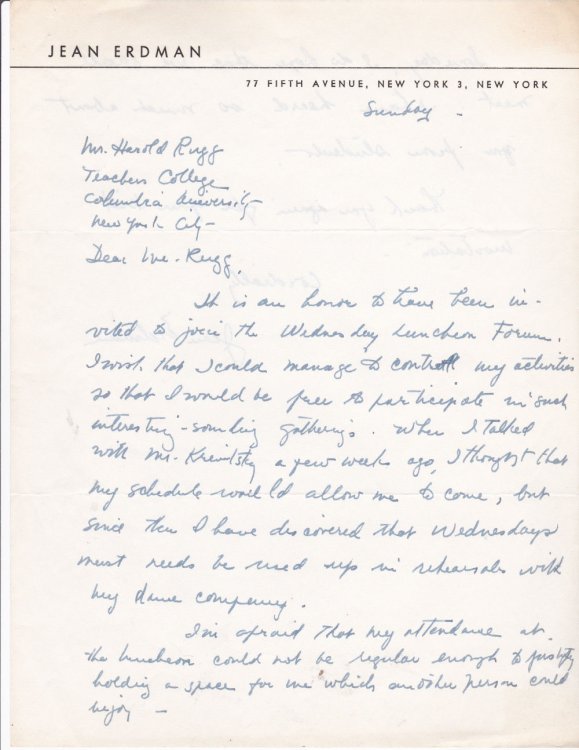 JEAN ERDMAN
77 FIFTH AVENUE, NEW YORK 3, NEW YORK
Sunday -
Mr. Harold Rugg
Teachers College
Columbia University
New York City -
Dear Mr. Rugg,
It is an honor to have been in-
vited to join the Wednesday Luncheon Forum.
I wish that I could manage to control my activities
so that I would be free to participate in such
interesting-sounding gatherings. When I talked
with Mr. Krevitsky a few weeks ago, I thought that
my schedule would allow me to come, but
since then I have discovered that Wednesdays
must needs be used up in rehearsals with
my dance company.
I'm afraid that my attendance at
the luncheon could not be regular enough to justify
holding a space for me which another person could
enjoy -